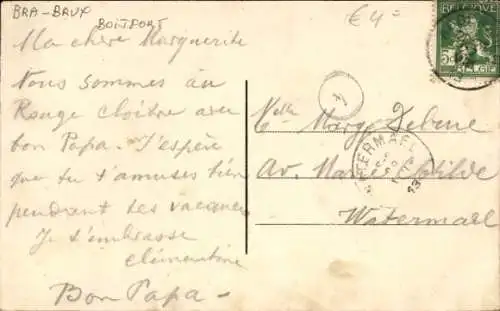 BRA-BRUX
BOITSFORT
€4=
BELGIQUE
5c 5c
BELGIË
Ma chère Marguerite
Nous sommes au
Rouge cloître avec
bon Papa. J'espère
que tu t'amuses bien
pendant tes vacances
Je t'embrasse
clémentine
Bon Papa -
Melle
Marg.
Av. Marie Clotilde
Watermael
WATERMAEL
13